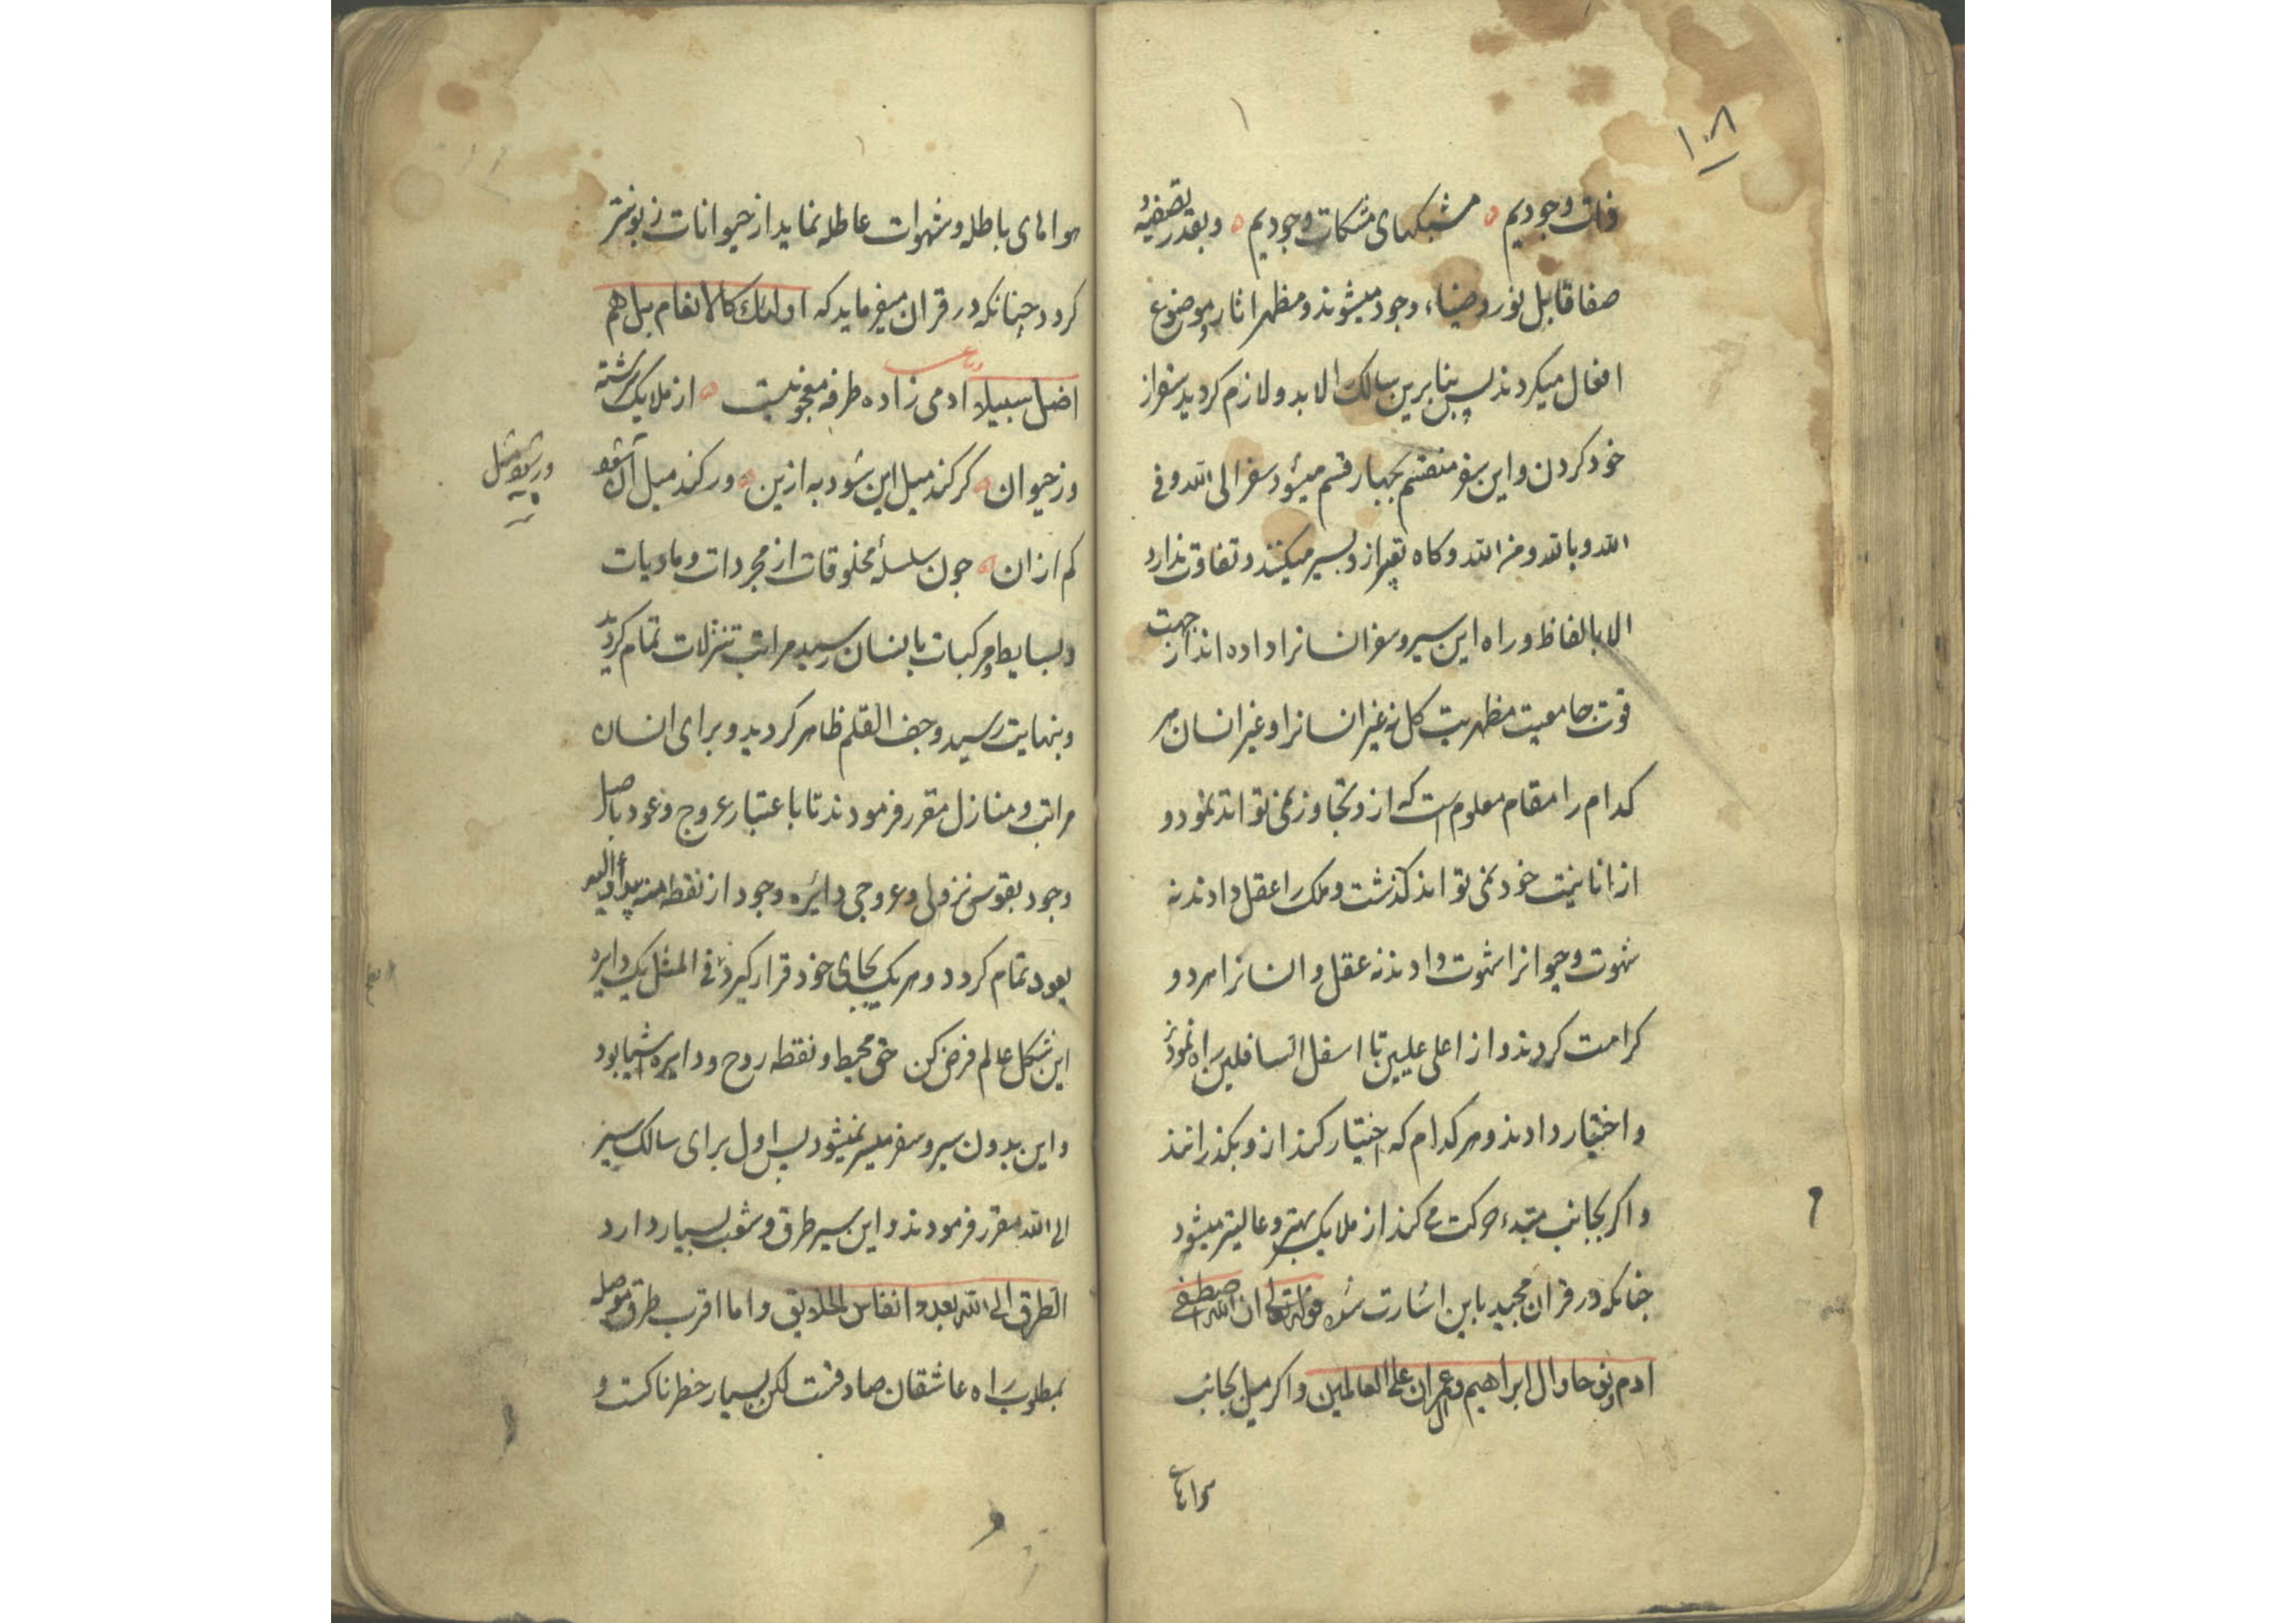 ۱۰۸
ذات وجودیم ه مشبکهای مشکات وجودیم ه وبقدر تصفیه و
صفا قابل نور وضیاء وجود میشوند و مظهر اثار و موضوع
افعال میکردند پس بنابرین سالک را لابد و لازم کردید سفر از
خود کردن و این سفر منقسم بچهار قسم میشود سفر الی الله وفی
الله وبالله ومن الله وکاه تعبیر ازو بسیر میکنند وتفاوت ندارد
الا بالفاظ وراه این سیر وسفر انسانرا داده اند از جهت
قوت جامعیت مظهریت کل نه غیر انسانرا وغیر انسان هر
کدام را مقام معلوم است که ازو تجاوز نمی تواند نمود و
از انانیت خود نمی تواند کذشت وملک را عقل دادند نه
شهوت وحیوانرا شهوت دادند نه عقل وانسانرا هر دو
کرامت کردند واز اعلی علیین تا اسفل السافلین راه نمودند
واختیار دادند وهر کدام که اختیار کند ازو بکذرانند
واکر بجانب مبتدء حرکت می کند از ملایک بهتر وعالیتر میشود
چنانکه در قران مجید باین اشارت شده قوله تعالی ان الله اصطفی
ادم ونوحا وال ابراهیم وال عمران علی العالمین واکر میل بجانب
هواهای
هواهای باطله وشهوات عاطله نماید از حیوانات زبونتر
کردد چنانکه در قران میفرماید که اولئک کالانعام بل هم
اضل سبیلا ادمی زاده طرفه معجونیست ه از ملایک سرشته
وز حیوان ه کر کند میل این شود به ازین ه ور کند میل آن شود
کم ازان ه چون سلسلهٔ مخلوقات از مجردات ومادیات
وبسایط ومرکبات بانسان رسید مراتب تنزلات تمام کردید
وبنهایت رسید وجف القلم ظاهر کردید وبرای انسان
مراتب ومنازل مقرر فرمودند تا باعتبار عروج وعود باصل
وجود بقوس نزولی وعروجی دائره وجود از نقطه منه بدأ والیه
یعود تمام کردد وهر یک بجای خود قرار کیرد فی المثل یک دایره
این شکل عالم فرض کن حق محیط ونقطه روح ودایره اشیا بود
واین بدون سیر وسفر میسر نمیشود پس اول برای سالک سیر
الی الله مقرر فرمودند واین سیر طرق وشعب بسیار دارد
الطرق الی الله بعدد انفاس الخلایق واما اقرب طرق موصله
بمطلوب راه عاشقان صادقست لکن بسیار خطرناکست و